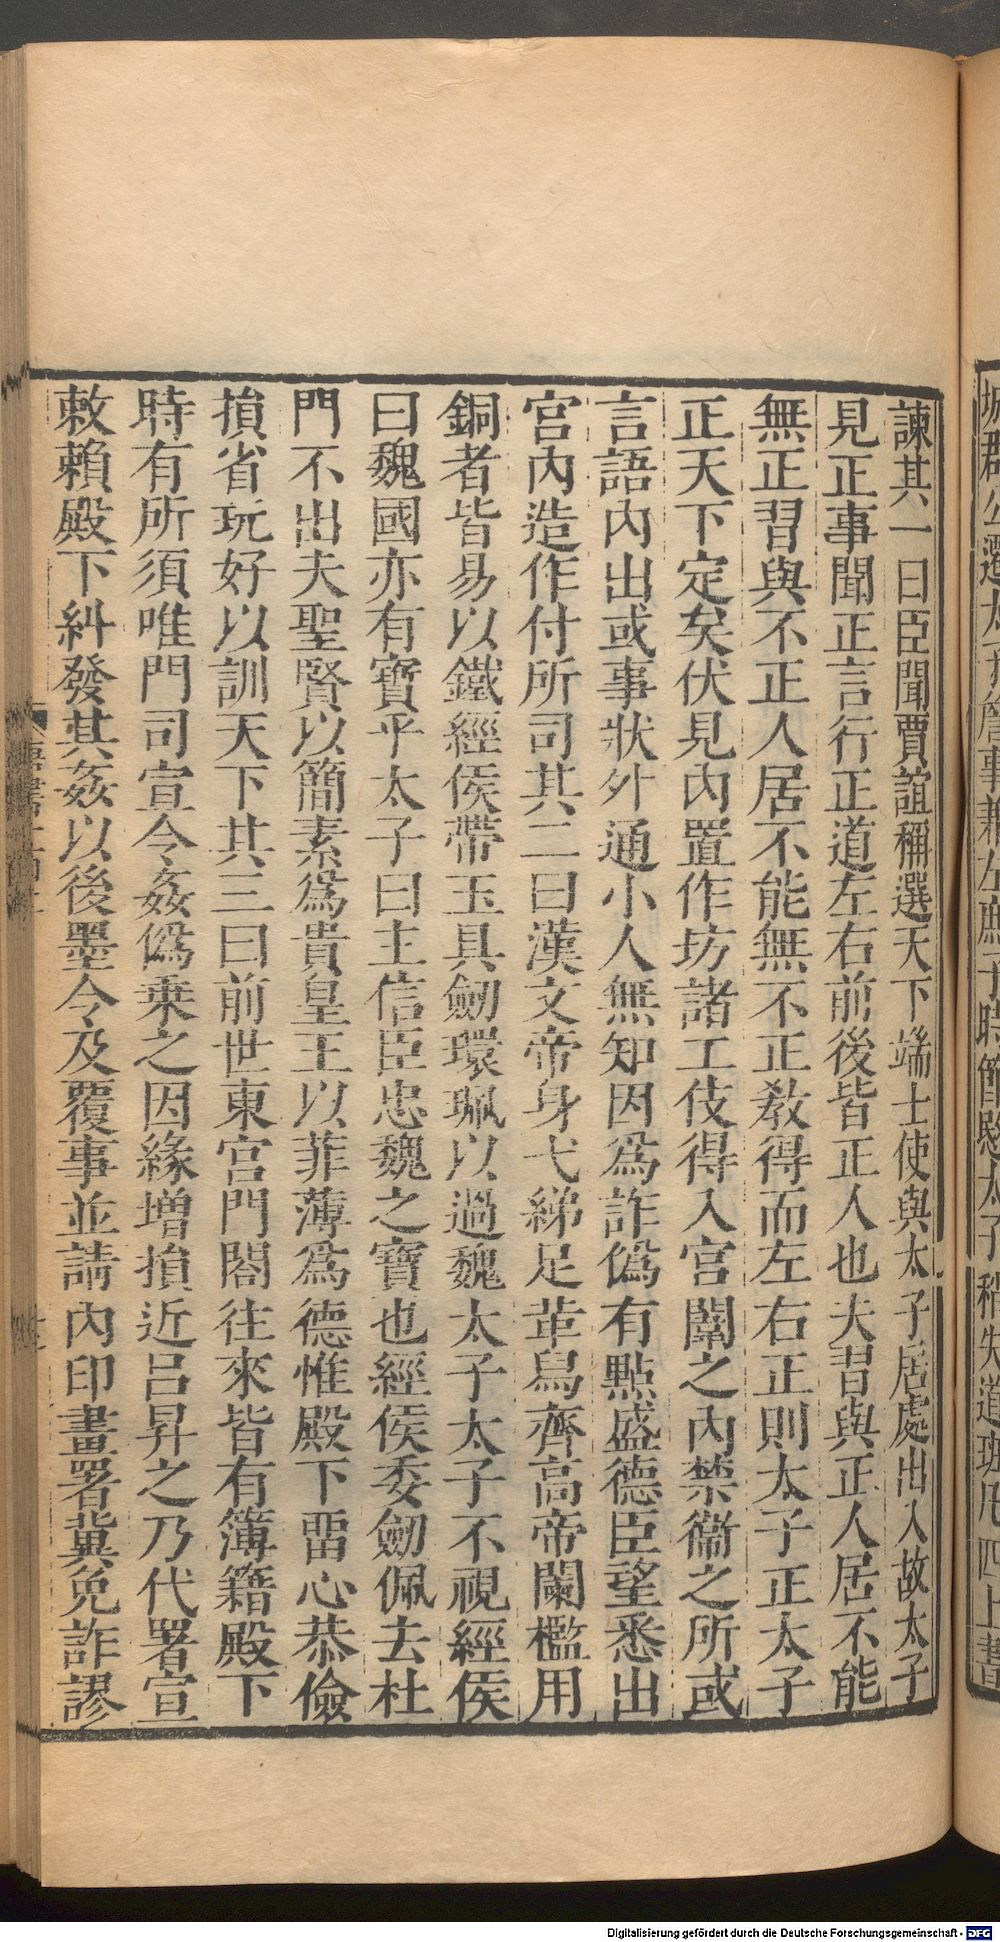 城郡公遷太子詹事兼左庶子時節愍太子稍失道珽凡四上書
諫其一曰臣聞賈誼稱選天下端士使與太子居處出入故太子
見正事聞正言行正道左右前後皆正人也夫習與正人居不能
無正習與不正人居不能無不正敎得而左右正則太子正太子
正天下定矣伏見內置作坊諸工伎得入宮闈之內禁衞之所或
言語內出或事狀外通小人無知因爲詐僞有點盛德臣望悉出
宮內造作付所司其二曰漢文帝身弋綈足革舄齊高帝闌檻用
銅者皆易以鐵經侯帶玉具劒環珮以過魏太子太子不視經侯
曰魏國亦有寶乎太子曰主信臣忠魏之寶也經侯委劒佩去杜
門不出夫聖賢以簡素爲貴皇王以菲薄爲德惟殿下畱心恭儉
損省玩好以訓天下其三曰前世東宮門閤往來皆有簿籍殿下
時有所須唯門司宣令姦僞乗之因緣增損近呂昇之乃代署宣
敕賴殿下糾發其姦以後墨令及覆事並請內印畫署冀免詐謬
Digitalisierung gefördert durch die Deutsche Forschungsgemeinschaft - DFG